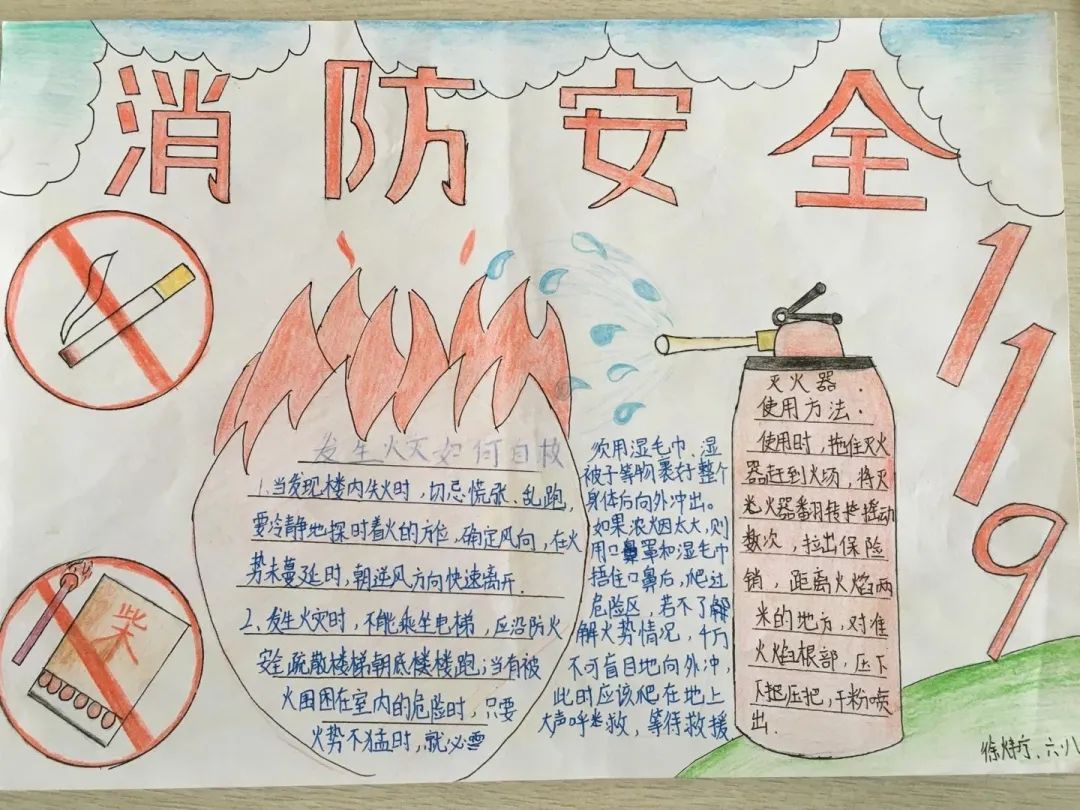 消防安全
119
柴
发生火灾如何自救
1.当发现楼内失火时，切忌慌张、乱跑，
要冷静地探时着火的方位，确定风向，在火
势未蔓延时，朝逆风方向快速离开.
2、发生火灾时，不能乘坐电梯，应沿防火
安全疏散楼梯朝底楼楼跑；当有被
火围困在室内的危险时，只要
火势不猛时，就必需
须用湿毛巾、湿
被子等物裹好整个
身体后向外冲出。
如果浓烟太大，则
用口鼻罩和湿毛巾
捂住口鼻后，爬过
危险区，若不了解
解火势情况，千万
不可盲目地向外冲，
此时应该爬在地上
大声呼救，等待救援
灭火器.
使用方法.
使用时，拖住灭火
器赶到火场，将灭
火器翻转摇动
数次，拉出保险
销，距离火焰两
米的地方，对准
火焰根部，压下
下把压把，干粉喷
出.
六.八